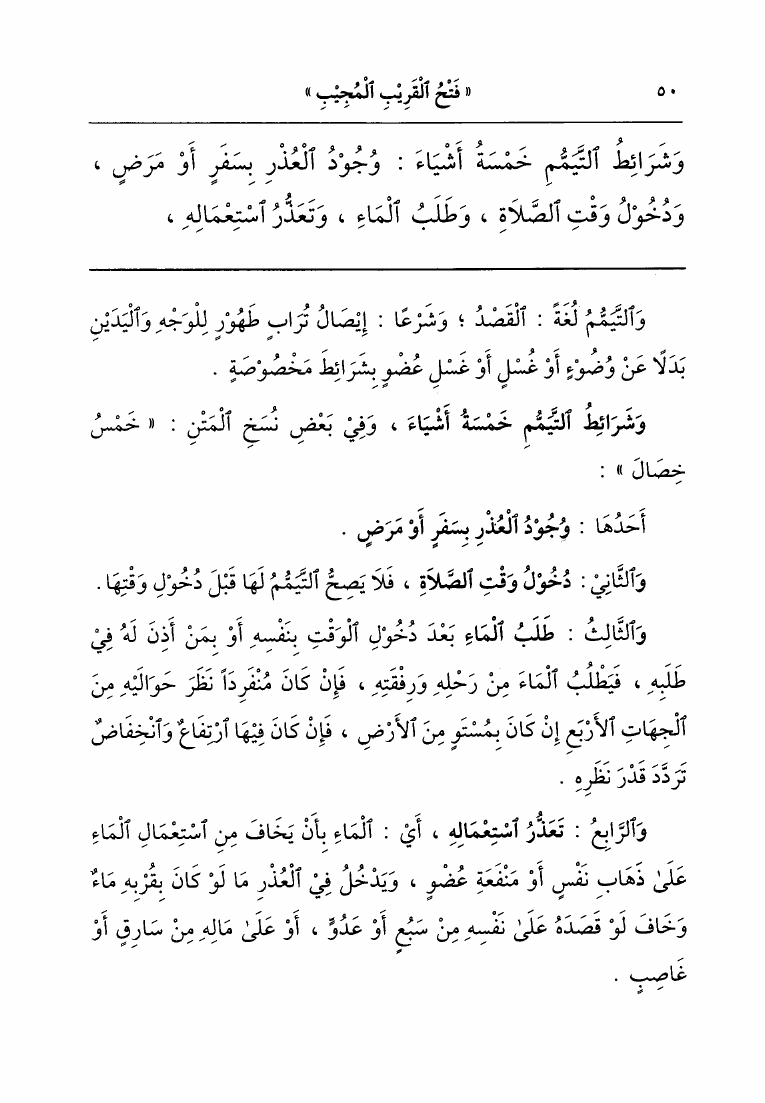 ٥٠ « فَتْحُ ٱلْقَرِيْبِ ٱلْمُجِيْبِ »
وَشَرَائِطُ ٱلتَّيَمُّمِ خَمْسَةُ أَشْيَاءَ : وُجُوْدُ ٱلْعُذْرِ بِسَفَرٍ أَوْ مَرَضٍ ،
وَدُخُوْلُ وَقْتِ ٱلصَّلَاةِ ، وَطَلَبُ ٱلْمَاءِ ، وَتَعَذُّرُ ٱسْتِعْمَالِهِ ،
وَٱلتَّيَمُّمُ لُغَةً : ٱلْقَصْدُ ؛ وَشَرْعًا : إِيْصَالُ تُرَابٍ طَهُوْرٍ لِلْوَجْهِ وَٱلْيَدَيْنِ
بَدَلًا عَنْ وُضُوْءٍ أَوْ غُسْلٍ أَوْ غَسْلِ عُضْوٍ بِشَرَائِطَ مَخْصُوْصَةٍ .
وَشَرَائِطُ ٱلتَّيَمُّمِ خَمْسَةُ أَشْيَاءَ ، وَفِيْ بَعْضِ نُسَخِ ٱلْمَتْنِ : « خَمْسُ
خِصَالٍ » :
أَحَدُهَا : وُجُوْدُ ٱلْعُذْرِ بِسَفَرٍ أَوْ مَرَضٍ .
وَٱلثَّانِيْ : دُخُوْلُ وَقْتِ ٱلصَّلَاةِ ، فَلَا يَصِحُّ ٱلتَّيَمُّمُ لَهَا قَبْلَ دُخُوْلِ وَقْتِهَا .
وَٱلثَّالِثُ : طَلَبُ ٱلْمَاءِ بَعْدَ دُخُوْلِ ٱلْوَقْتِ بِنَفْسِهِ أَوْ بِمَنْ أَذِنَ لَهُ فِيْ
طَلَبِهِ ، فَيَطْلُبُ ٱلْمَاءَ مِنْ رَحْلِهِ وَرِفْقَتِهِ ، فَإِنْ كَانَ مُنْفَرِدَاً نَظَرَ حَوَالَيْهِ مِنَ
ٱلْجِهَاتِ ٱلأَرْبَعِ إِنْ كَانَ بِمُسْتَوٍ مِنَ ٱلأَرْضِ ، فَإِنْ كَانَ فِيْهَا ٱرْتِفَاعٌ وَٱنْخِفَاضٌ
تَرَدَّدَ قَدْرَ نَظَرِهِ .
وَٱلرَّابِعُ : تَعَذُّرُ ٱسْتِعْمَالِهِ ، أَيْ : ٱلْمَاءِ بِأَنْ يَخَافَ مِنِ ٱسْتِعْمَالِ ٱلْمَاءِ
عَلَىٰ ذَهَابِ نَفْسٍ أَوْ مَنْفَعَةِ عُضْوٍ ، وَيَدْخُلُ فِيْ ٱلْعُذْرِ مَا لَوْ كَانَ بِقُرْبِهِ مَاءٌ
وَخَافَ لَوْ قَصَدَهُ عَلَىٰ نَفْسِهِ مِنْ سَبُعٍ أَوْ عَدُوٍّ ، أَوْ عَلَىٰ مَالِهِ مِنْ سَارِقٍ أَوْ
غَاصِبٍ .